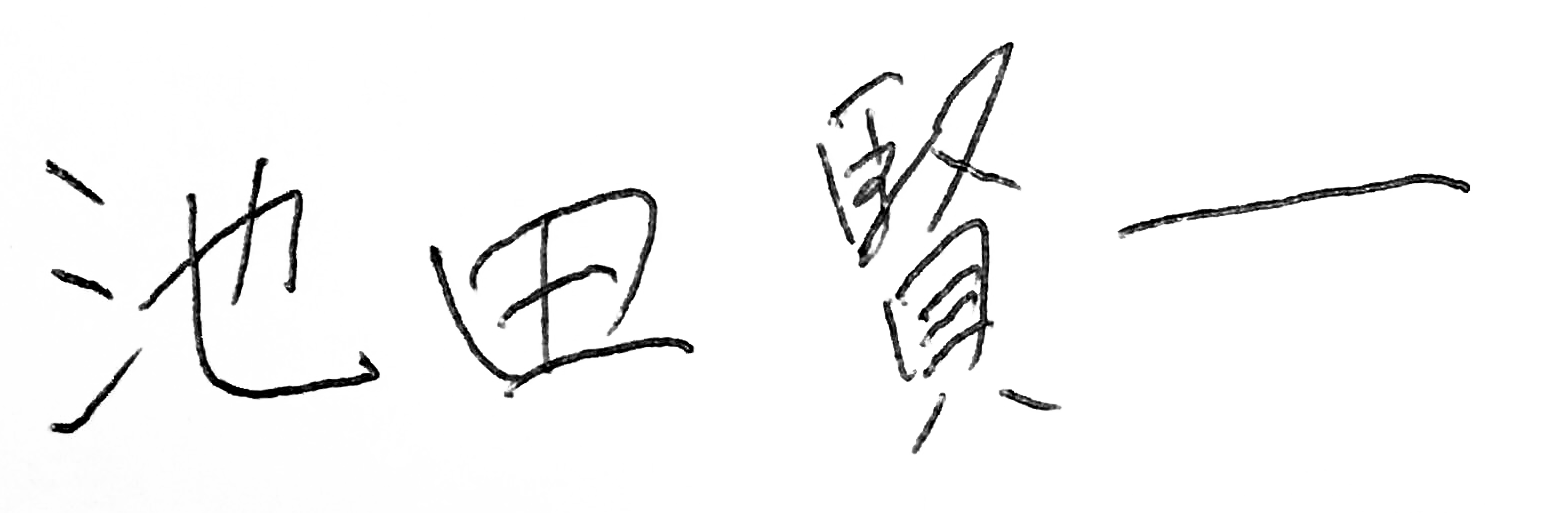 池田賢一